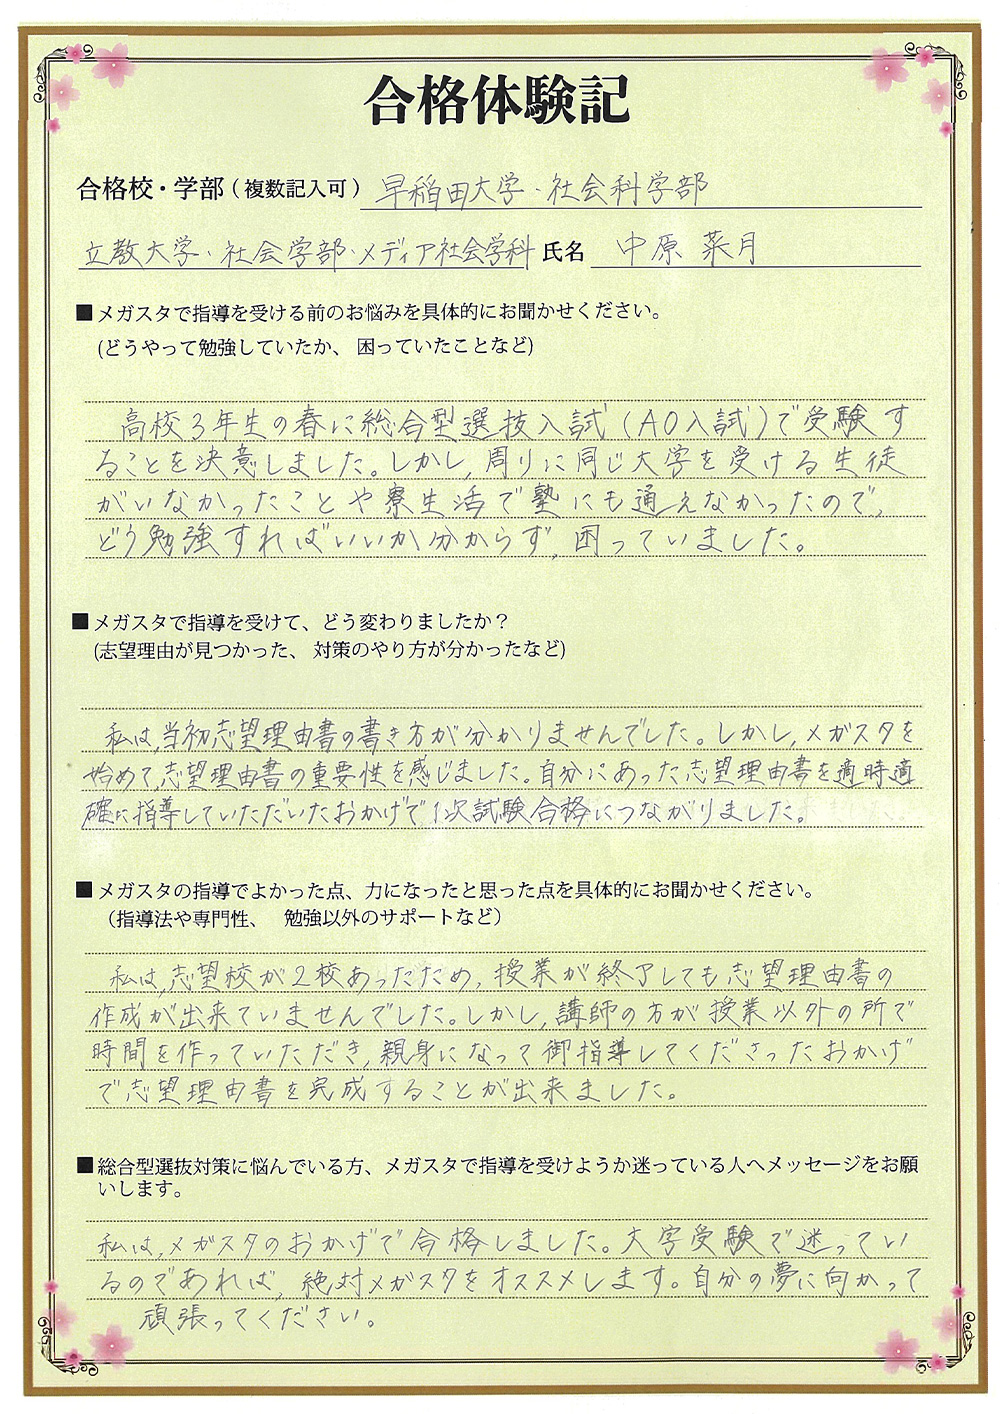 合格体験記
合格校・学部(複数記入可) 早稲田大学・社会科学部
立教大学・社会学部・メディア社会学科 氏名 中原 菜月
■メガスタで指導を受ける前のお悩みを具体的にお聞かせください。
(どうやって勉強していたか、困っていたことなど)
高校3年生の春に総合型選抜入試(AO入試)で受験す
ることを決意しました。しかし、周りに同じ大学を受ける生徒
がいなかったことや寮生活で塾にも通えなかったので、
どう勉強すればいいか分からず、困っていました。
■メガスタで指導を受けて、どう変わりましたか？
(志望理由が見つかった、対策のやり方が分かったなど)
私は、当初志望理由書の書き方が分かりませんでした。しかし、メガスタを
始めて、志望理由書の重要性を感じました。自分にあった志望理由書を適時適
確に指導していただいたおかげで1次試験合格につながりました。
■メガスタの指導でよかった点、力になったと思った点を具体的にお聞かせください。
（指導法や専門性、 勉強以外のサポートなど）
私は、志望校が2校あったため、授業が終了しても志望理由書の
作成が出来ていませんでした。しかし、講師の方が授業以外の所で
時間を作っていただき、親身になって御指導してくださったおかげ
で志望理由書を完成することが出来ました。
■総合型選抜対策に悩んでいる方、メガスタで指導を受けようか迷っている人へメッセージをお願
いします。
私は、メガスタのおかげで合格しました。大学受験で迷ってい
るのであれば、絶対メガスタをオススメします。自分の夢に向かって
頑張ってください。